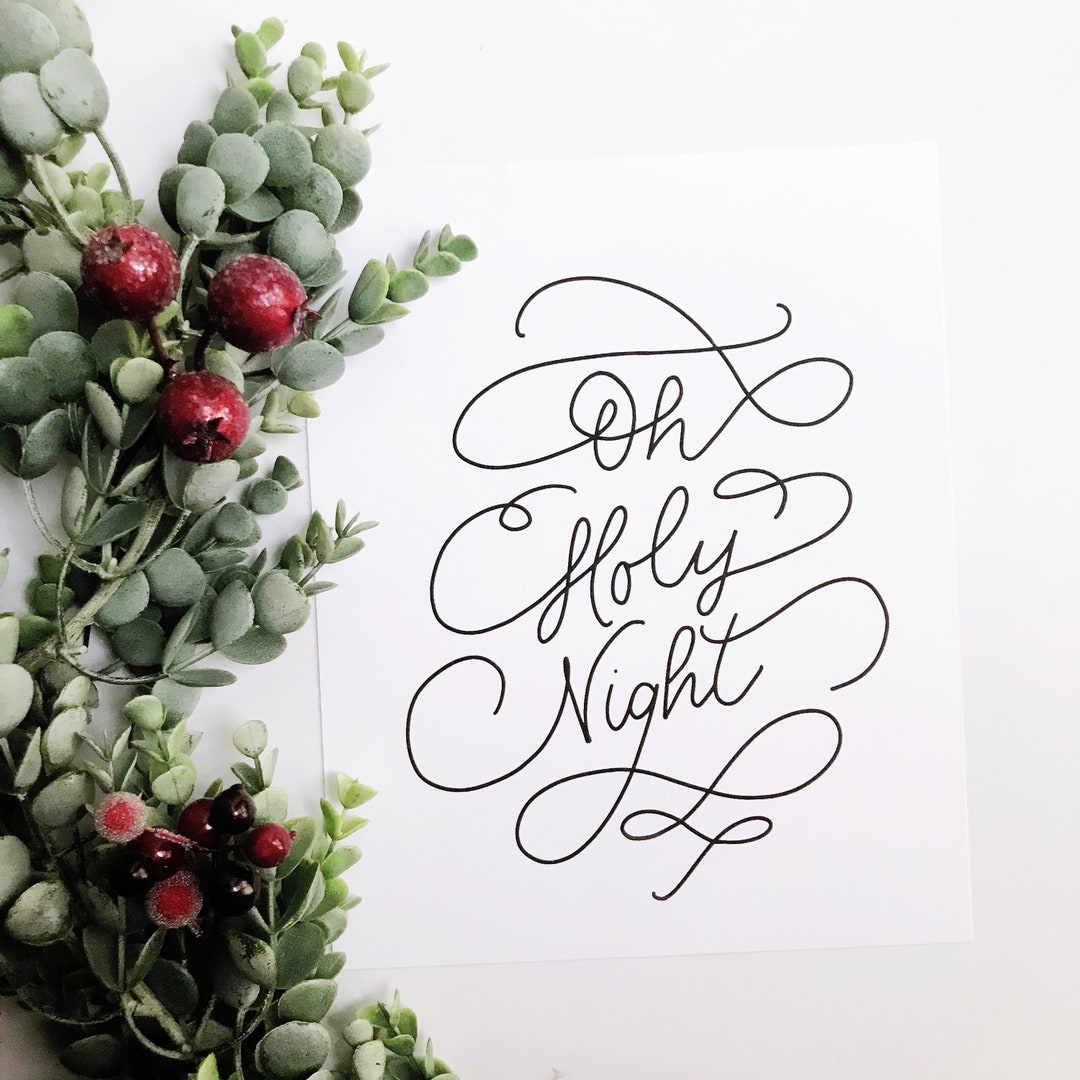 Oh
Holy
Night